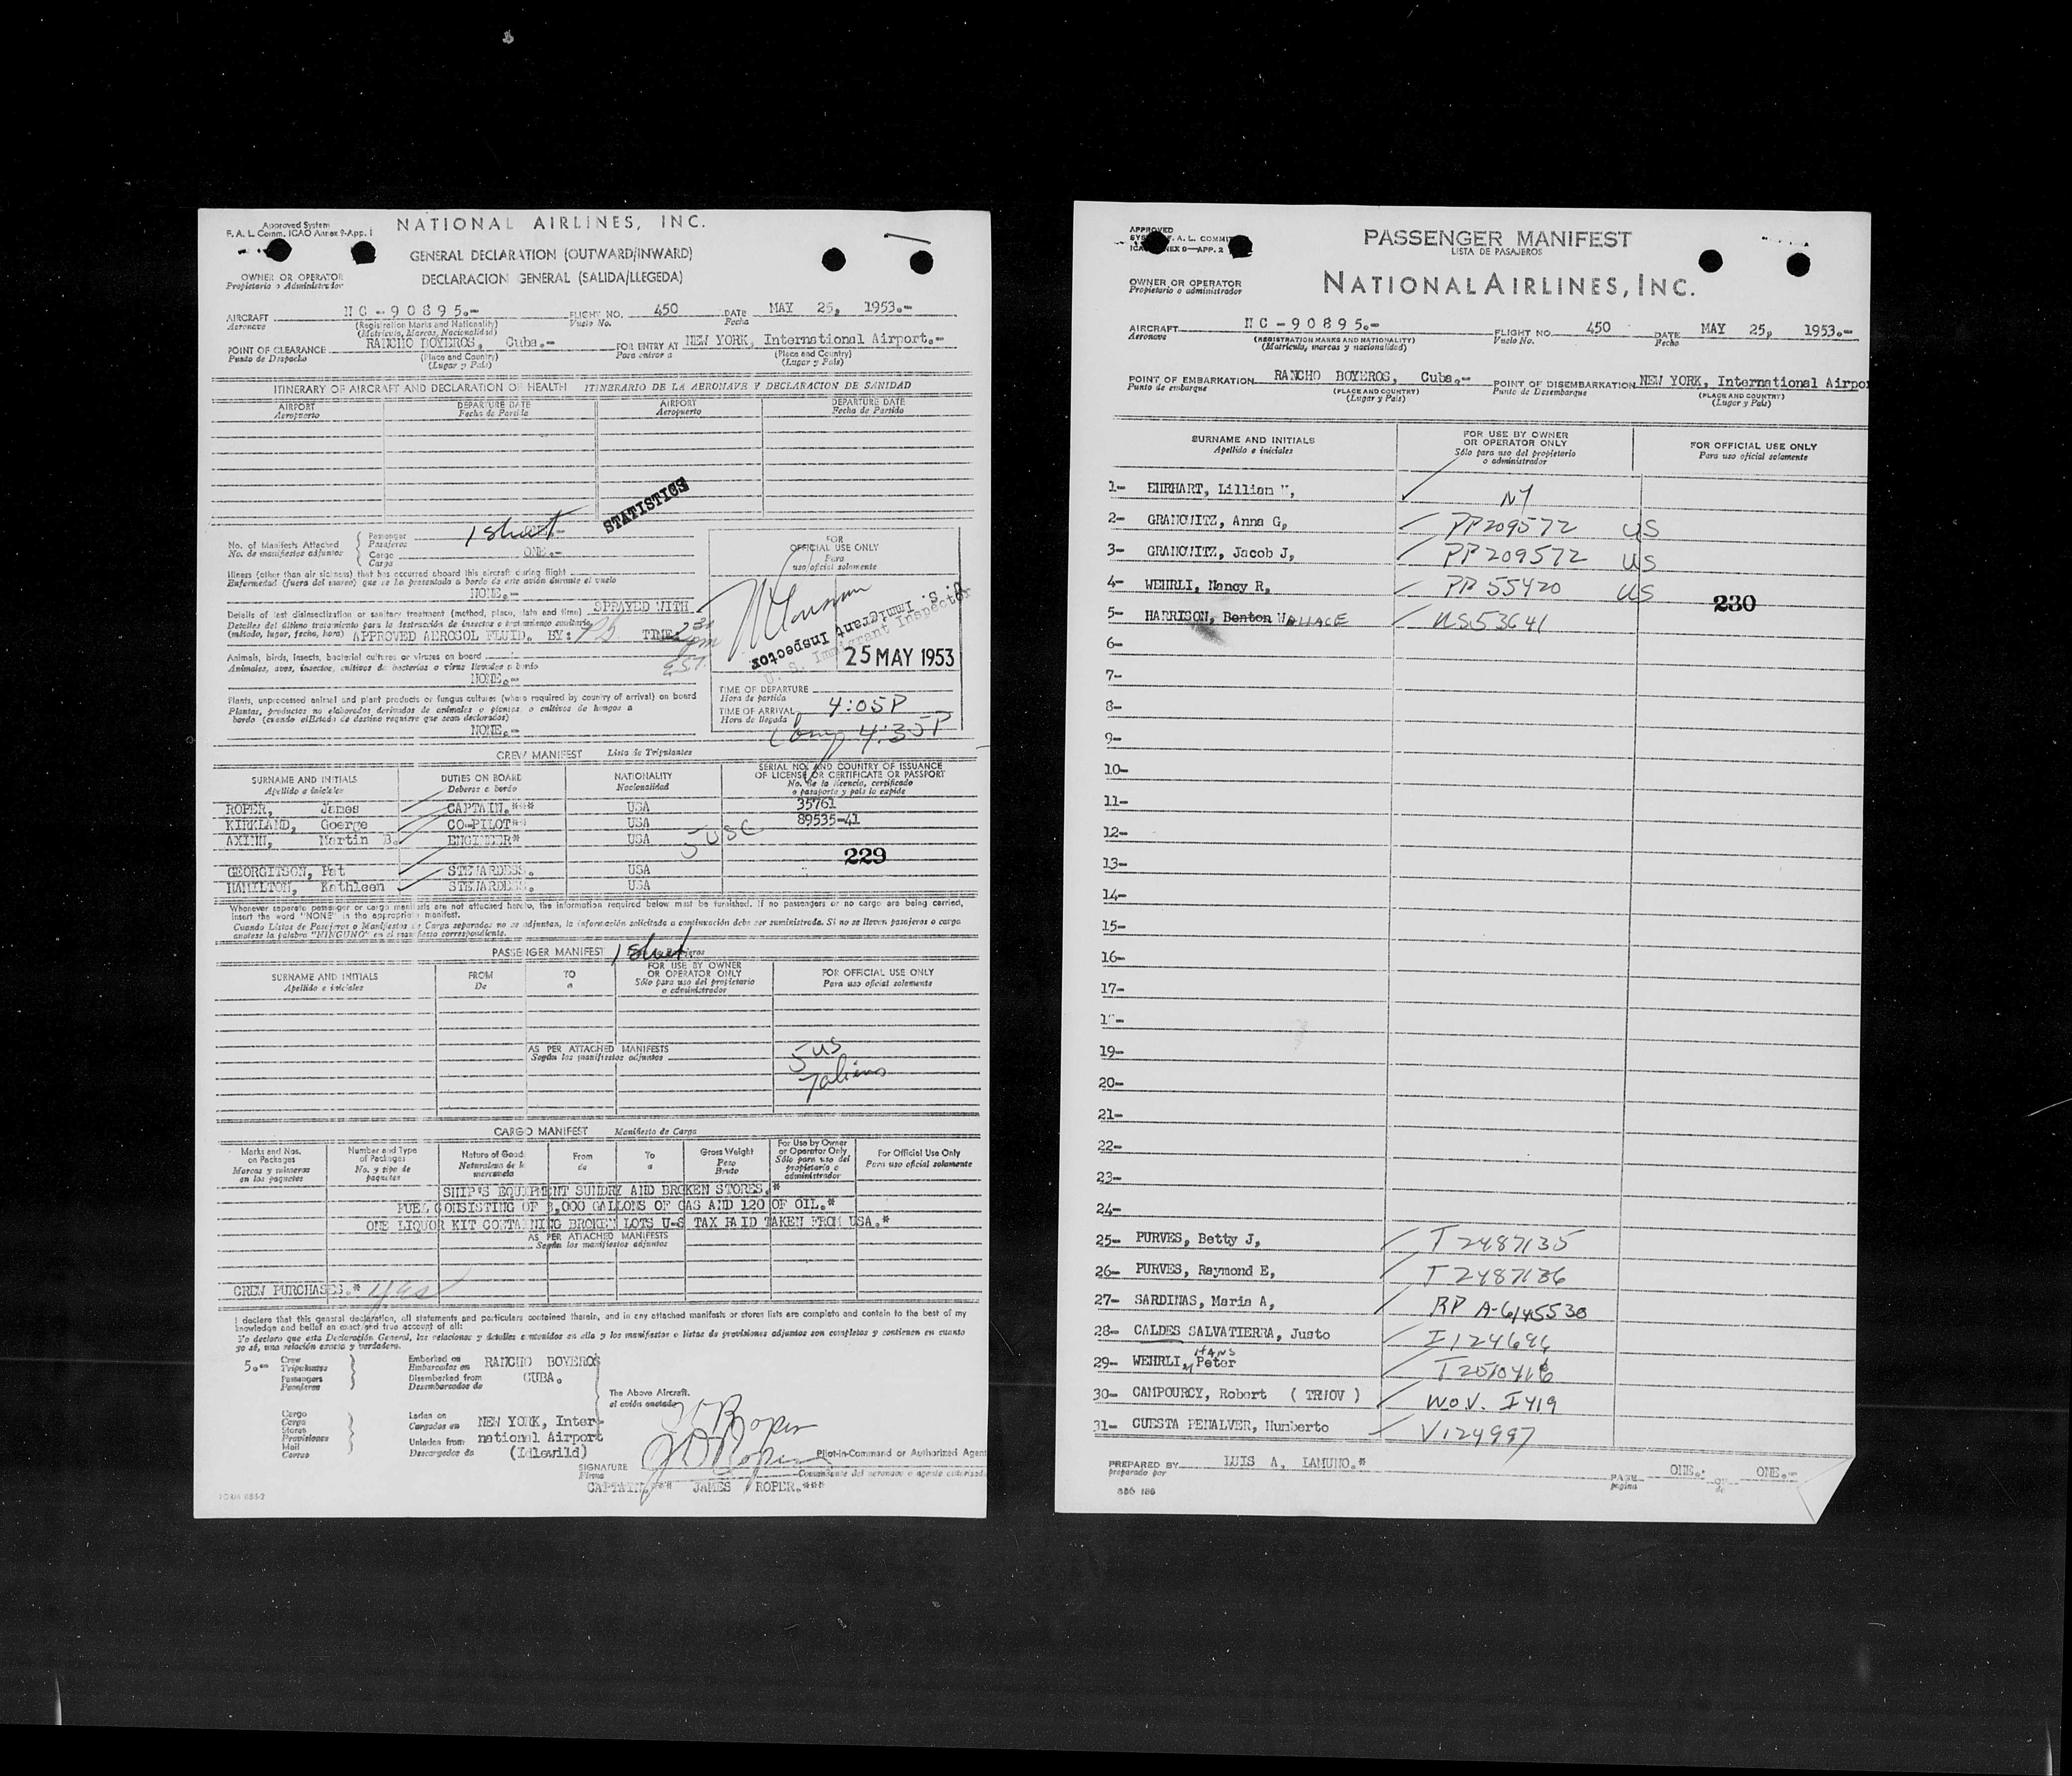 Approved System
F. A. L. Comm. ICAO Annex 9-App. 1
NATIONAL AIRLINES, INC.
GENERAL DECLARATION (OUTWARD/INWARD)
DECLARACION GENERAL (SALIDA/LLEGEDA)
OWNER OR OPERATOR
Propietario o Administrador
AIRCRAFT NC-90895.- FLIGHT NO. 450 DATE MAY 25, 1953.-
Aeronave (Registration Marks and Nationality) Vuelo No. Fecha
(Matricula, Marcas, Nacionalidad)
POINT OF CLEARANCE RANCHO BOYEROS, Cuba.- FOR ENTRY AT NEW YORK, International Airport.-
Punto de Despacho (Place and Country) Para entrar a (Place and Country)
(Lugar y Pais) (Lugar y Pais)
ITINERARY OF AIRCRAFT AND DECLARATION OF HEALTH ITINERARIO DE LA AERONAVE Y DECLARACION DE SANIDAD
AIRPORT DEPARTURE DATE AIRPORT DEPARTURE DATE
Aeropuerto Fecha de Partida Aeropuerto Fecha de Partida
STATISTICS
No. of Manifests Attached Passenger 1 sheet
No. de manifiestos adjuntos Pasajeros
Cargo ONE.-
Carga
Illness (other than air sickness) that has occurred aboard this aircraft during flight
Enfermedad (fuera del mareo) que se ha presentado a bordo de este avión durante el vuelo
NONE.-
Details of last disinsectization or sanitary treatment (method, place, date and time) SPRAYED WITH
Detalles del último tratamiento para la destrucción de insectos o tratamiento sanitario
(método, lugar, fecha, hora) APPROVED AEROSOL FLUID. BY: TIME:
EST.
Animals, birds, insects, bacterial cultures or viruses on board
Animales, aves, insectos, cultivos de bacterias o virus llevados a bordo
NONE.-
Plants, unprocessed animal and plant products or fungus cultures (where required by country of arrival) on board
Plantas, productos no elaborados derivados de animales o plantas, o cultivos de hongos a
bordo (cuando el Estado de destino requiere que sean declarados)
NONE.-
FOR
OFFICIAL USE ONLY
Para
uso oficial solamente
U. S. Immigrant Inspector
25 MAY 1953
TIME OF DEPARTURE
Hora de partida
TIME OF ARRIVAL 4:05P
Hora de llegada
Comp 4:35P
CREW MANIFEST Lista de Tripulantes
SURNAME AND INITIALS DUTIES ON BOARD NATIONALITY SERIAL NO. AND COUNTRY OF ISSUANCE
OF LICENSE OR CERTIFICATE OR PASSPORT
Apellido e iniciales Deberes a bordo Nacionalidad No. de la licencia, certificado
o pasaporte y pais lo expide
ROPER, James CAPTAIN.*** USA 35761
KIRKLAND, Goerge CO-PILOT** USA 89535-41
AXINN, Martin B. ENGINEER* USA
5 USC
229
GEORGITSON, Pat STEWARDESS. USA
HAMILTON, Kathleen STEWARDESS. USA
Whenever separate passenger or cargo manifests are not attached hereto, the information required below must be furnished. If no passengers or no cargo are being carried,
insert the word "NONE" in the appropriate manifest.
Cuando Listas de Pasajeros o Manifiestos de Carga separados no se adjuntan, la información solicitada a continuación debe ser suministrada. Si no se lleven pasajeros o carga
anótese la palabra "NINGUNO" en el manifiesto correspondiente.
PASSENGER MANIFEST 1 Sheet
SURNAME AND INITIALS FROM TO FOR USE BY OWNER
OR OPERATOR ONLY FOR OFFICIAL USE ONLY
Apellido e iniciales De a Sólo para uso del propietario
o administrador Para uso oficial solamente
AS PER ATTACHED MANIFESTS
Según los manifiestos adjuntos
5 US
7 aliens
CARGO MANIFEST Manifiesto de Carga
Marks and Nos. on Packages Number and Type of Packages Nature of Goods From To Gross Weight For Use by Owner or Operator Only For Official Use Only
Marcas y números en los paquetes No. y tipo de paquetes Naturaleza de la mercancía de a Peso Bruto Sólo para uso del propietario o administrador Para uso oficial solamente
SHIP'S EQUIPMENT SUNDRY AND BROKEN STORES.*
FUEL CONSISTING OF 3,000 GALLONS OF GAS AND 120 OF OIL.*
ONE LIQUOR KIT CONTAINING BROKEN LOTS U-S TAX PAID TAKEN FROM USA.*
AS PER ATTACHED MANIFESTS
Según los manifiestos adjuntos
CREW PURCHASES.* yes
I declare that this general declaration, all statements and particulars contained therein, and in any attached manifests or stores lists are complete and contain to the best of my
knowledge and belief an exact and true account of all:
Yo declaro que esta Declaración General, las relaciones y detalles contenidos en ella y los manifiestos o listas de provisiones adjuntos son completos y contienen en cuanto
yo sé, una relación exacta y verdadera.
5.-- Crew Embarked on RANCHO BOYEROS
Tripulantes Embarcados en
Passengers Disembarked from CUBA.
Pasajeros Desembarcados de
The Above Aircraft.
el avión anotado
Cargo Laden on NEW YORK, Inter-
Carga Cargados en
Stores
Provisiones Unladen from national Airport
Mail Descargados de (Idlewild)
Correo
J D Roper
J D Roper
Pilot-in-Command or Authorized Agent
SIGNATURE
Firma Comandante del aeronave o agente autorizado
CAPTAIN.*** JAMES ROPER.***
FORM 685-2
APPROVED
SYSTEM F. A. L. COMMITTEE
ICAO ANNEX 9—APP. 2
PASSENGER MANIFEST
LISTA DE PASAJEROS
OWNER OR OPERATOR
Propietario o administrador
NATIONAL AIRLINES, INC.
AIRCRAFT NC-90895.- FLIGHT NO. 450 DATE MAY 25, 1953.-
Aeronave (REGISTRATION MARKS AND NATIONALITY) Vuelo No. Fecha
(Matricula, marcas y nacionalidad)
POINT OF EMBARKATION RANCHO BOYEROS, Cuba.- POINT OF DISEMBARKATION NEW YORK, International Airpor
Punto de embarque (PLACE AND COUNTRY) Punto de Desembarque (PLACE AND COUNTRY)
(Lugar y Pais) (Lugar y Pais)
SURNAME AND INITIALS FOR USE BY OWNER
OR OPERATOR ONLY FOR OFFICIAL USE ONLY
Apellido e iniciales Sólo para uso del propietario
o administrador Para uso oficial solamente
1- EHRHART, Lillian NY
2- GRANOWITZ, Anna G, PP209572 US
3- GRANOWITZ, Jacob J, PP209572 US
4- WEHRLI, Nancy R, PP 55420 US
230
5- HARRISON, Benton WALLACE US53641
6-
7-
8-
9-
10-
11-
12-
13-
14-
15-
16-
17-
1-
19-
20-
21-
22-
23-
24-
25- PURVES, Betty J, T2487135
26- PURVES, Raymond E, T2487136
27- SARDINAS, Maria A, RP A-6145530
28- CALDES SALVATIERRA, Justo I124696
HANS
29- WEHRLI, Peter T2510416
30- CAMPOURCY, Robert ( TRIOV ) W.O.V. I419
31- CUESTA PENALVER, Humberto V124997
PREPARED BY LUIS A, LAMUNO.* PAGE ONE.: OF ONE.-
preparado por página de
886 186